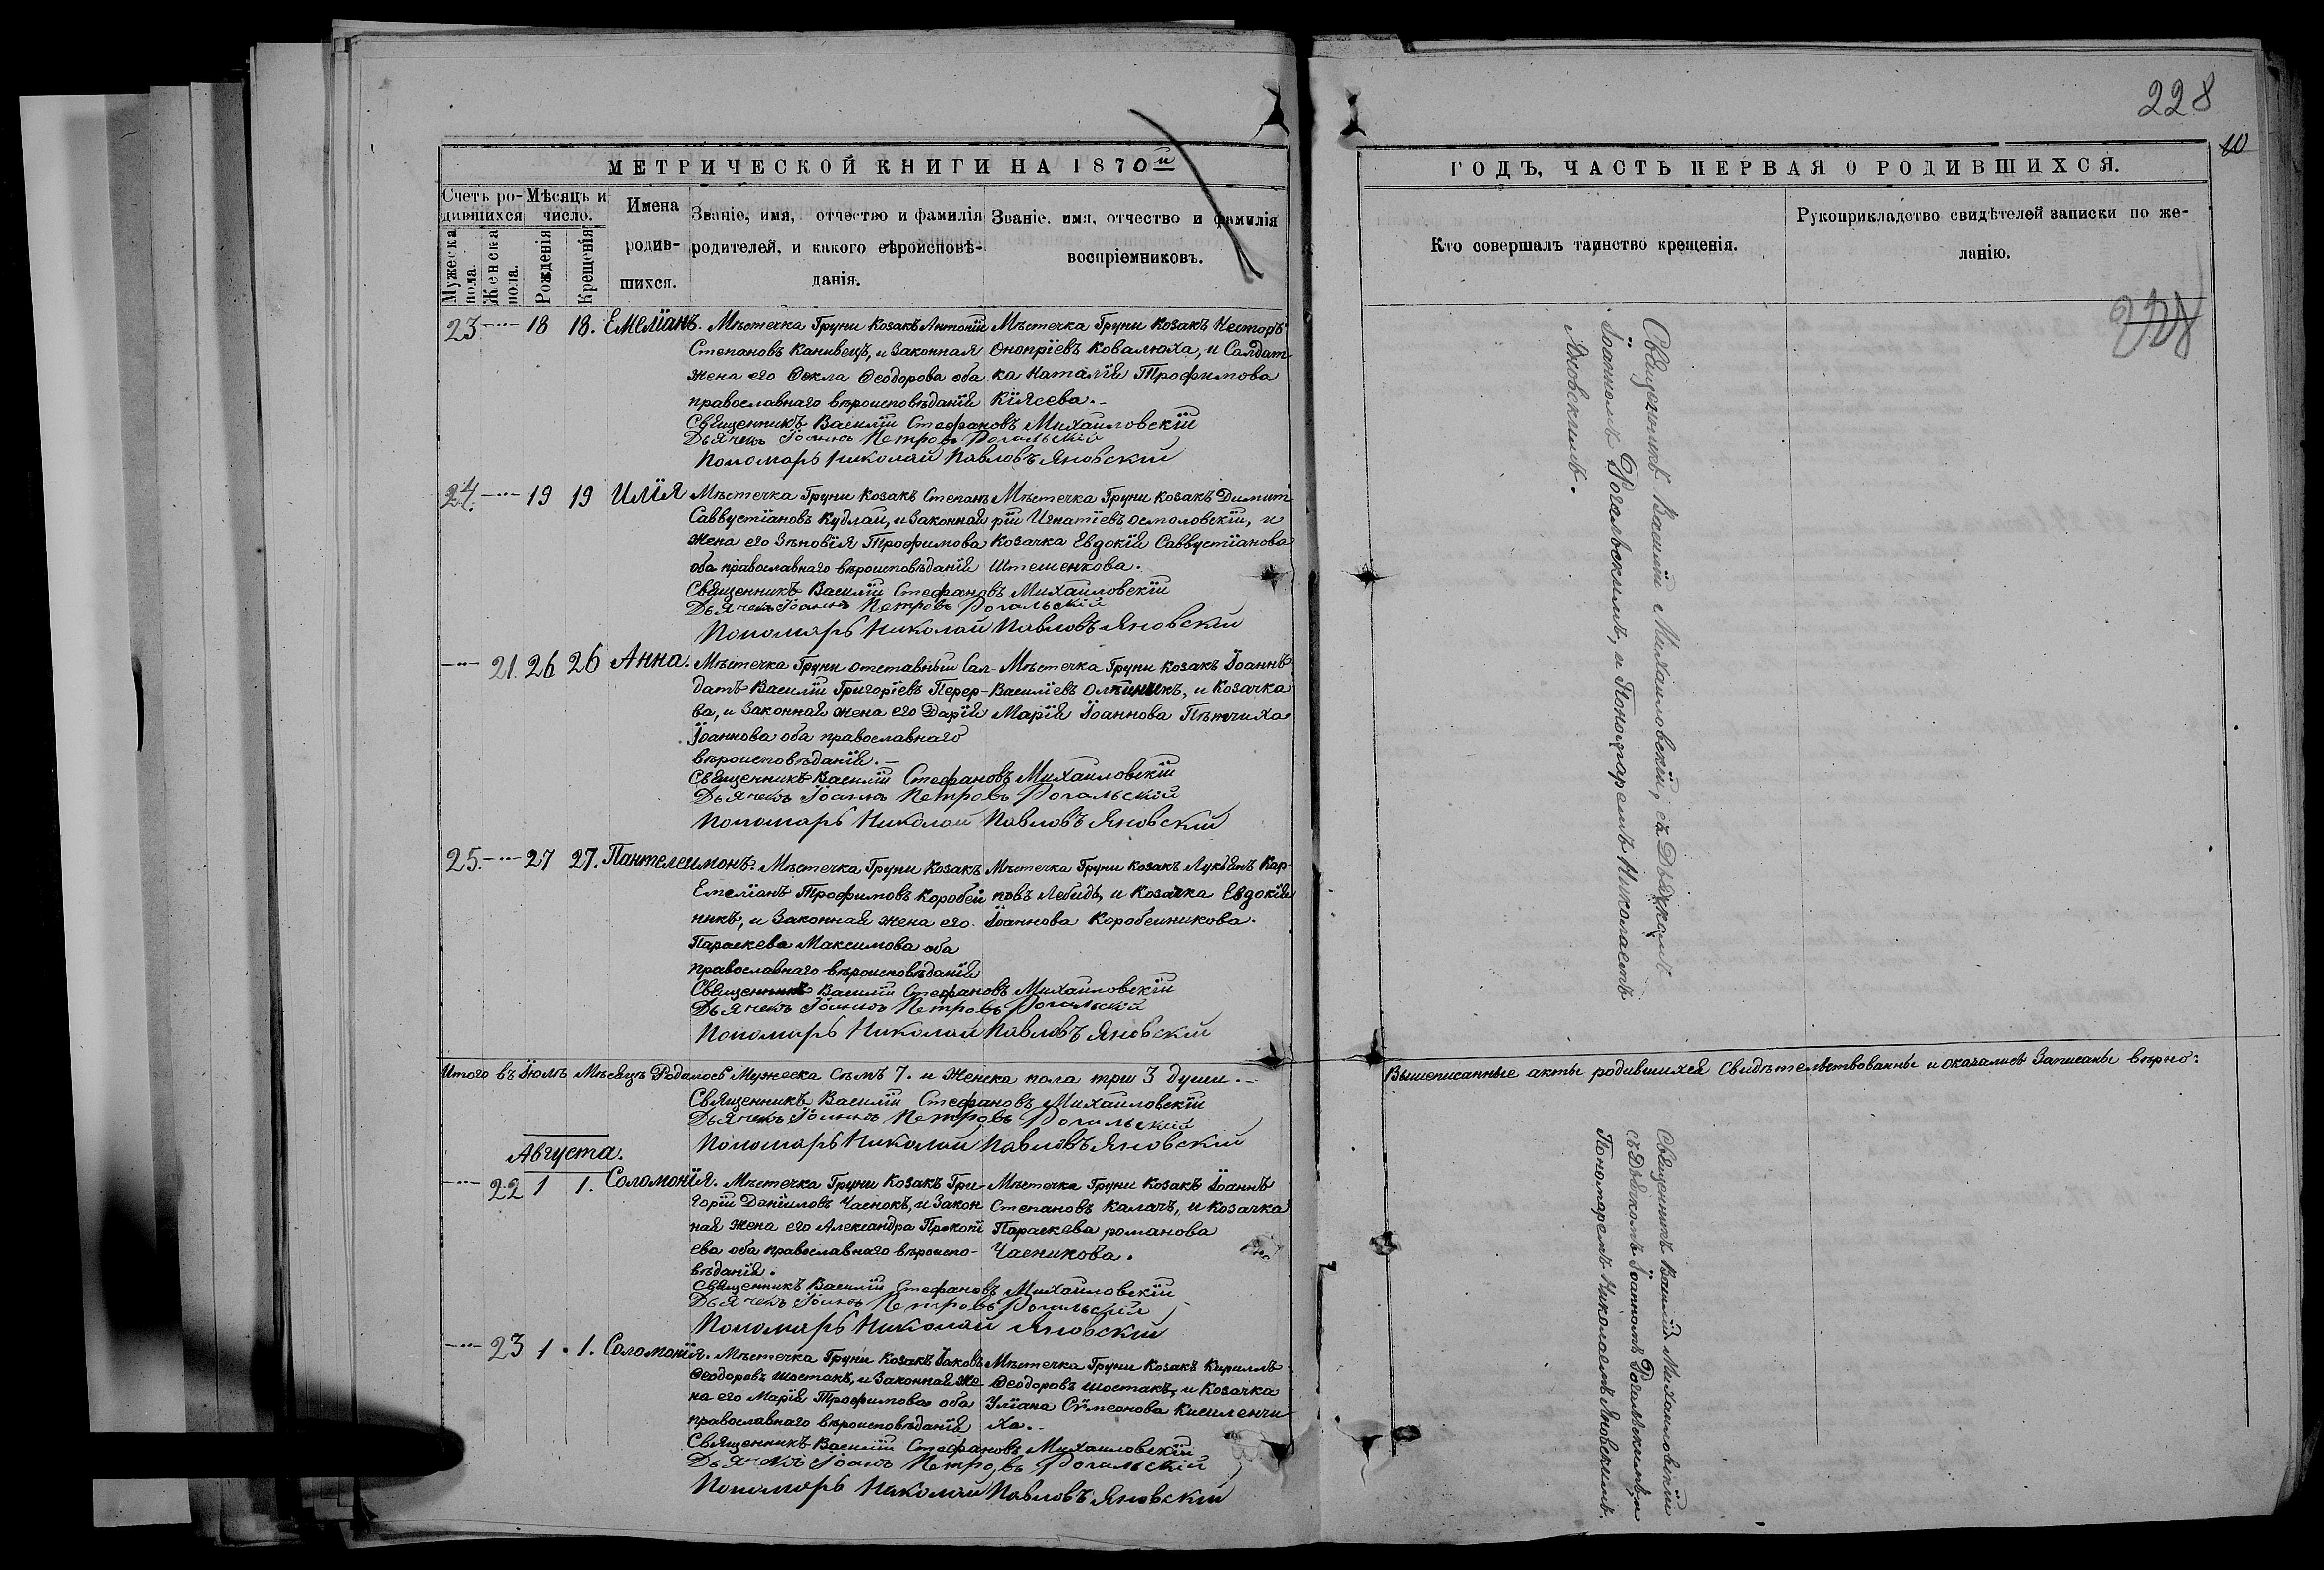 МЕТРИЧЕСКОЙ КНИГИ НА 1870й
Счетъ ро-
дившихся
Мѣсяцъ и
число.
Мужеска
пола.
Женска
пола.
Рожденія
Крещенія
Имена
родив-
шихся.
Званіе, имя, отчество и фамилія
родителей, и какого вѣроисповѣ-
данія.
Званіе. имя, отчество и фамилія
воспріемниковъ.
23 18 18. Емеліанъ. Мѣстечка Груни Козакъ Антоній Мѣстечка Груни Козакъ Несторъ
Степановъ Канивецъ, и Законная Онопріевъ Ковалюха, и Салдат
жена его Ѳекла Ѳеодорова оба ка Наталія Трофимова
православнаго вѣроисповѣданія Кіяєва.
Священникъ Василій Стефановъ Михаиловскій
Дьячекъ Іоаннъ Петровъ Рогальскій
Пономарь Николай Павловъ Яновскій
24. 19 19 Илія Мѣстечка Груни Козакъ Степанъ Мѣстечка Груни Козакъ Димит
Саввустіановъ Кудлай, и Законная рій Игнатіевъ Осмоловскій, и
жена его Зѣновія Трофимова Козачка Евдокія Саввустіанова
оба православнаго вѣроисповѣданія Штешенкова.
Священникъ Василій Стефановъ Михаиловскій
Дьячекъ Іоаннъ Петровъ Рогальскій
Пономарь Николай Павловъ Яновскій
21. 26 26 Анна. Мѣстечка Груни отставный Сал- Мѣстечка Груни Козакъ Іоаннъ
датъ Василій Григоріевъ Перер- Василіевъ и Козачка
ва, и Законная жена его Дарія Марія Іоаннова
Іоаннова оба православнаго
вѣроисповѣданія.
Священникъ Василій Стефановъ Михаиловскій
Дьячекъ Іоаннъ Петровъ Рогальскій
Пономарь Николай Павловъ Яновскій
25. 27 27. Пантелеимонъ. Мѣстечка Груни Козакъ Мѣстечка Груни Козакъ Лукіянъ Кар-
Емеліанъ Трофимовъ Коробей повъ Лебидь, и Козачка Евдокія
никъ, и Законная жена его Іоаннова Коробейникова.
Параскева Максимова оба
православнаго вѣроисповѣданія
Священникъ Василій Стефановъ Михаиловскій
Дьячекъ Іоаннъ Петровъ Рогальскій
Пономарь Николай Павловъ Яновскій
Итого въ Іюлѣ Мѣсяцѣ Родилось Мужеска семъ 7. и Женска пола три 3 души.
Священникъ Василій Стефановъ Михаиловскій
Дьячекъ Іоаннъ Петровъ Рогальскій
Пономарь Николай Павловъ Яновскій
Августа.
22 1 1. Соломонія. Мѣстечка Груни Козакъ Гри- Мѣстечка Груни Козакъ Іоаннъ
горій Даниловъ Часнокъ, и Закон Степановъ Калачъ, и Козачка
ная жена его Александра Прокопі Параскева романова
ева оба православнаго вѣроиспо- Часникова.
вѣданія.
Священникъ Василій Стефановъ Михаиловскій
Дьячекъ Іоаннъ Петровъ Рогальскій
Пономарь Николай Яновскій
23 1. 1. Соломонія. Мѣстечка Груни Козакъ Іаковъ Мѣстечка Груни Козакъ Кириллъ
Ѳеодоровъ шостакъ, и Законная же Ѳеодоровъ шостакъ, и Козачка
на его Марія Трофимова оба Уліана Сѵмеонова Кисиленчи
православнаго вѣроисповѣданія ха.
Священникъ Василій Стефановъ Михаиловскій
Дьячекъ Іоаннъ Петровъ Рогальскій
Пономарь Николай Павловъ Яновскій
228
10
ГОДЪ, ЧАСТЬ ПЕРВАЯ О РОДИВШИХСЯ.
Кто совершалъ таинство крещенія.
Рукоприкладство свидѣтелей записки по же-
ланію.
328
Священникъ Василій Михаиловскій, съ Дьячкомъ
Іоанномъ Рогальскимъ, и Пономаремъ Николаемъ
Яновскимъ.
Вышеписанные акты родившихся Свидѣтельствованы и оказались Записаны вѣрно:
Священникъ Василій Михаиловскій
съ Дьячкомъ Іоанномъ Рогальскимъ и
Пономаремъ Николаемъ Яновскимъ.